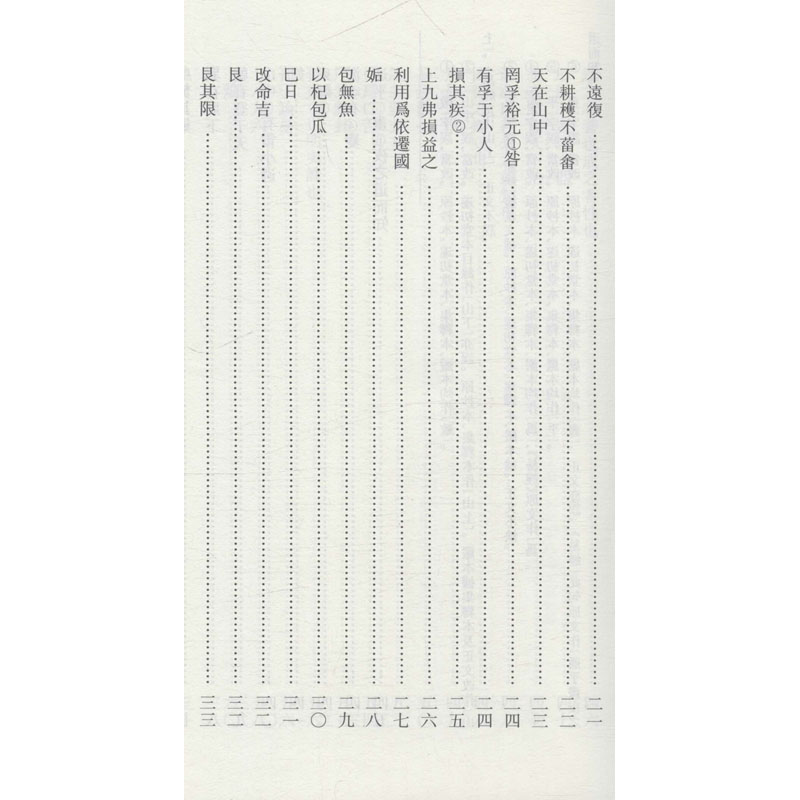 不遠復……二一
不耕穫不菑畬……二二
天在山中……二三
罔孚裕元①咎……二四
有孚于小人……二四
損其疾②……二五
上九弗損益之……二六
利用爲依遷國……二七
姤……二八
包無魚……二九
以杞包瓜……三〇
巳日……三一
改命吉……三二
艮……三二
艮其限……三三